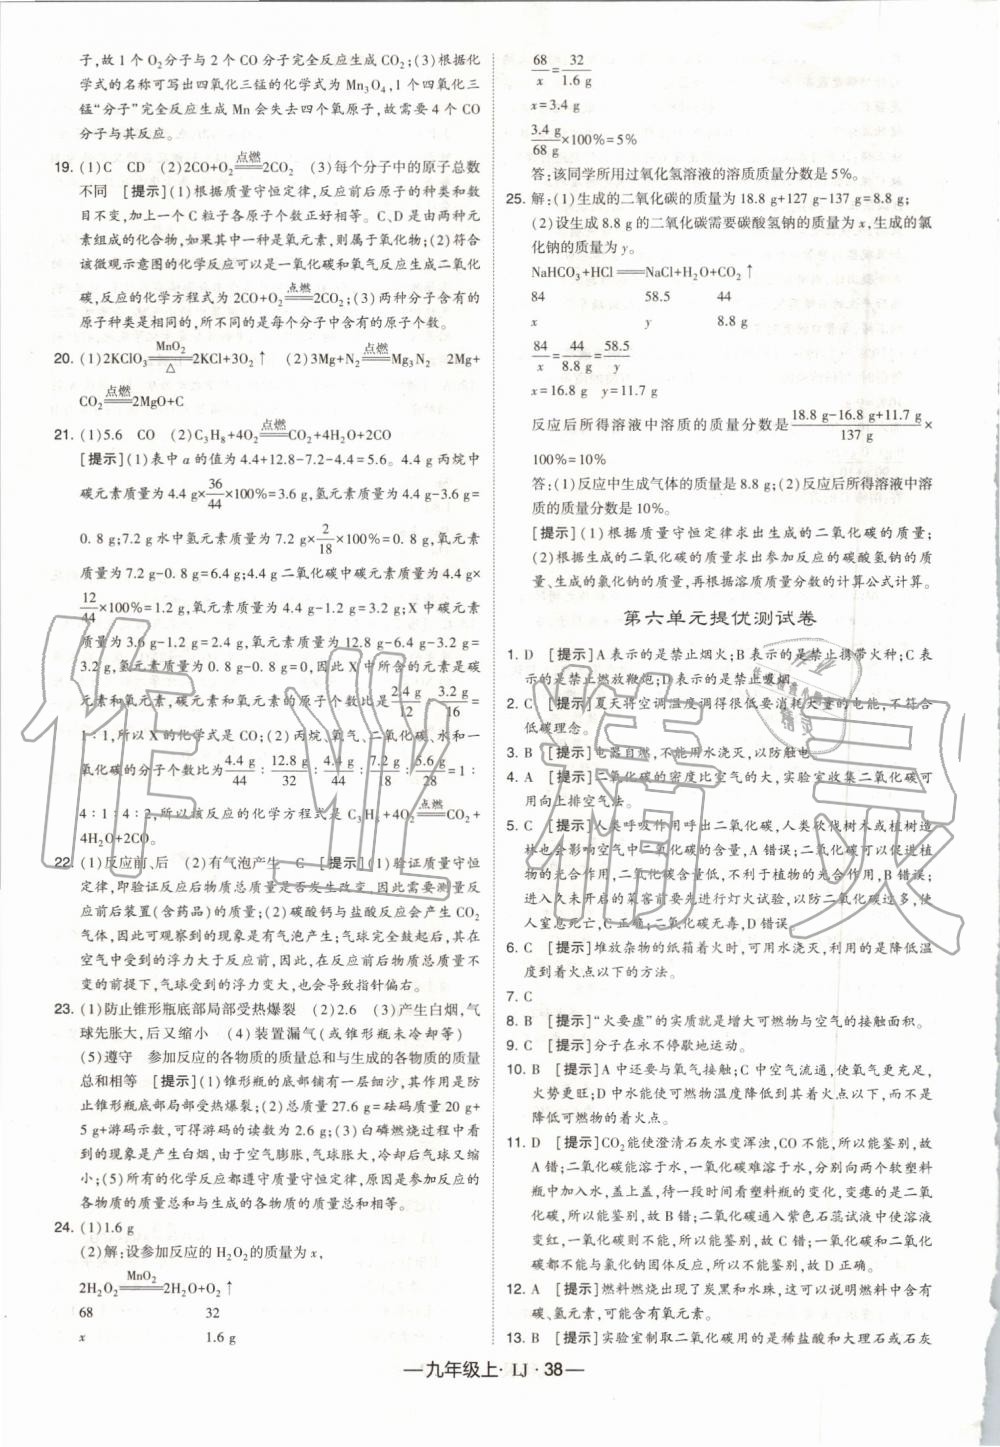 子,故 1 个 O₂分子与 2 个 CO 分子完全反应生成 CO₂;(3)根据化
学式的名称可写出四氧化三锰的化学式为 Mn₃O₄,1 个四氧化三
锰“分子”完全反应生成 Mn 会失去四个氧原子,故需要 4 个 CO
分子与其反应。
19. (1)C CD (2)2CO+O₂ 点燃═2CO₂ (3)每个分子中的原子总数
不同 [提示](1)根据质量守恒定律,反应前后原子的种类和数
目不变,加上一个 C 粒子各原子个数正好相等。C、D是由两种元
素组成的化合物,如果其中一种是氧元素,则属于氧化物;(2)符合
该微观示意图的化学反应可以是一氧化碳和氧气反应生成二氧化
碳,反应的化学方程式为 2CO+O₂ 点燃═2CO₂;(3)两种分子含有的
原子种类是相同的,所不同的是每个分子中含有的原子个数。
20. (1)2KClO₃ MnO₂═△ 2KCl+3O₂↑ (2)3Mg+N₂ 点燃═Mg₃N₂ 2Mg+
CO₂ 点燃═2MgO+C
21. (1)5.6 CO (2)C₃H₈+4O₂ 点燃═CO₂+4H₂O+2CO
[提示](1)表中 a 的值为 4.4+12.8-7.2-4.4=5.6。4.4 g 丙烷中
碳元素质量为 4.4 g×36/44×100%=3.6 g,氢元素质量为 4.4 g-3.6 g=
0.8 g;7.2 g 水中氢元素质量为 7.2 g×2/18×100%=0.8 g,氧元素
质量为 7.2 g-0.8 g=6.4 g;4.4 g 二氧化碳中碳元素质量为 4.4 g×
12/44×100%=1.2 g,氧元素质量为 4.4 g-1.2 g=3.2 g;X 中碳元素
质量为 3.6 g-1.2 g=2.4 g,氧元素质量为 12.8 g-6.4 g-3.2 g=
3.2 g,氢元素质量为 0.8 g-0.8 g=0 g,因此 X 中所含的元素是碳
元素和氧元素,碳元素和氧元素的原子个数比是2.4 g/12:3.2 g/16=
1:1,所以 X 的化学式是 CO;(2)丙烷、氧气、二氧化碳、水和一
氧化碳的分子个数比为4.4 g/44:12.8 g/32:4.4 g/44:7.2 g/18:5.6 g/28=1:
4:1:4:2,所以该反应的化学方程式是 C₃H₈+4O₂ 点燃═CO₂+
4H₂O+2CO。
22. (1)反应前、后 (2)有气泡产生 C [提示](1)验证质量守恒
定律,即验证反应后物质总质量是否发生改变,因此需要测量反
应前后装置(含药品)的质量;(2)碳酸钙与盐酸反应会产生 CO₂
气体,因此可观察到的现象是有气泡产生;气球完全鼓起后,其在
空气中受到的浮力大于反应前,因此,在反应前后物质总质量不
变的前提下,受到的浮力变大,也会导致指针偏右。
23. (1)防止锥形瓶底部局部受热爆裂 (2)2.6 (3)产生白烟,气
球先胀大,后又缩小 (4)装置漏气(或锥形瓶未冷却等)
(5)遵守 参加反应的各物质的质量总和与生成的各物质的质量
总和相等 [提示](1)锥形瓶的底部铺有一层细沙,其作用是防
止锥形瓶底部局部受热爆裂;(2)总质量 27.6 g=砝码质量 20 g+
5 g+游码示数,可得游码的读数为 2.6 g;(3)白磷燃烧过程中看
到的现象是产生白烟,因气体膨胀,气球胀大,冷却后气球又缩
小;(5)所有的化学反应都遵守质量守恒定律,原因是参加反应的
各物质的质量总和与生成的各物质的质量总和相等。
24. (1)1.6 g
(2)解:设参加反应的 H₂O₂的质量为 x,
2H₂O₂ MnO₂═2H₂O+O₂↑
68 32
x 1.6 g
68/x=32/1.6 g
x=3.4 g
3.4 g/68 g×100%=5%
答:该同学所用过氧化氢溶液的溶质质量分数是 5%。
25. 解:(1)生成的二氧化碳的质量为 18.8 g+127 g-137 g=8.8 g;
(2)设生成 8.8 g 的二氧化碳需要碳酸氢钠的质量为 x,生成的氯
化钠的质量为 y。
NaHCO₃+HCl═NaCl+H₂O+CO₂↑
84 58.5 44
x y 8.8 g
84/x=44/8.8 g=58.5/y
x=16.8 g y=11.7 g
反应后所得溶液中溶质的质量分数是18.8 g-16.8 g+11.7 g/137 g×
100%=10%
答:(1)反应中生成气体的质量是 8.8 g;(2)反应后所得溶液中溶
质的质量分数是 10%。
[提示](1)根据质量守恒定律求出生成的二氧化碳的质量;
(2)根据生成的二氧化碳的质量求出参加反应的碳酸氢钠的质
量、生成的氯化钠的质量,再根据溶质质量分数的计算公式计算。
第六单元提优测试卷
1. D [提示]A 表示的是禁止烟火;B 表示的是禁止携带火种;C 表
示的是禁止燃放鞭炮;D 表示的是禁止吸烟。
2. C [提示]夏天将空调温度调得很低要消耗大量的电能,不符合
低碳理念。
3. B [提示]电器自燃,不能用水浇灭,以防触电。
4. A [提示]二氧化碳的密度比空气的大,实验室收集二氧化碳可
用向上排空气法。
5. C [提示]人类呼吸作用呼出二氧化碳,人类砍伐树木或植树造
林也会影响空气中二氧化碳的含量,A 错误;二氧化碳可以促进植
物的光合作用,二氧化碳量低,不利于植物的光合作用,B 错误;
进入久未开启的菜窖前要先进行灯火试验,以防二氧化碳过多,使
人窒息死亡,C 正确;二氧化碳无毒,D 错误。
6. C [提示]堆放杂物的纸箱着火时,可用水浇灭,利用的是降低温
度到着火点以下的方法。
7. C
8. B [提示]“火要虚”的实质就是增大可燃物与空气的接触面积。
9. C [提示]分子在永不停歇地运动。
10. B [提示]A 中还要与氧气接触;C 中空气流通,使氧气更充足,
火势更旺;D 中水能使可燃物温度降低到其着火点以下,而不是
降低可燃物的着火点。
11. D [提示]CO₂能使澄清石灰水变浑浊,CO 不能,所以能鉴别,故
A 错;二氧化碳能溶于水,一氧化碳难溶于水,分别向两个软塑料
瓶中加入水,盖上盖,待一段时间看塑料瓶的变化,变瘪的是二氧
化碳,所以能鉴别,故 B 错;二氧化碳通入紫色石蕊试液中使溶液
变红,一氧化碳则不能,所以能鉴别,故 C 错;一氧化碳和二氧化
碳都不能与氯化钠固体反应,所以不能鉴别,故 D 正确。
12. A [提示]燃料燃烧出现了炭黑和水珠,这说明燃料中含有
碳、氢元素,可能含有氧元素。
13. B [提示]实验室制取二氧化碳用的是稀盐酸和大理石或石灰
—九年级上·LJ·38—
作业精灵